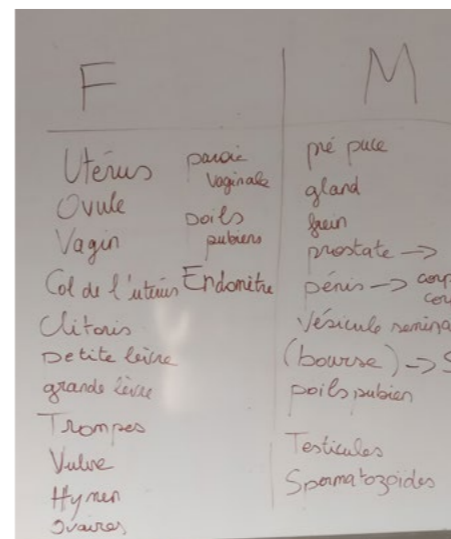 F
Utérus
Ovule
Vagin
Col de l'utérus
Clitoris
petite lèvre
grande lèvre
Trompes
Vulve
Hymen
Ovaires
paroie
vaginale
poils
pubiens
Endomètre
M
pré puce
gland
frein
prostate →
pénis → corp
Vésicule semina
(bourse) → S
poils pubien
Testicules
Spermatozoïdes